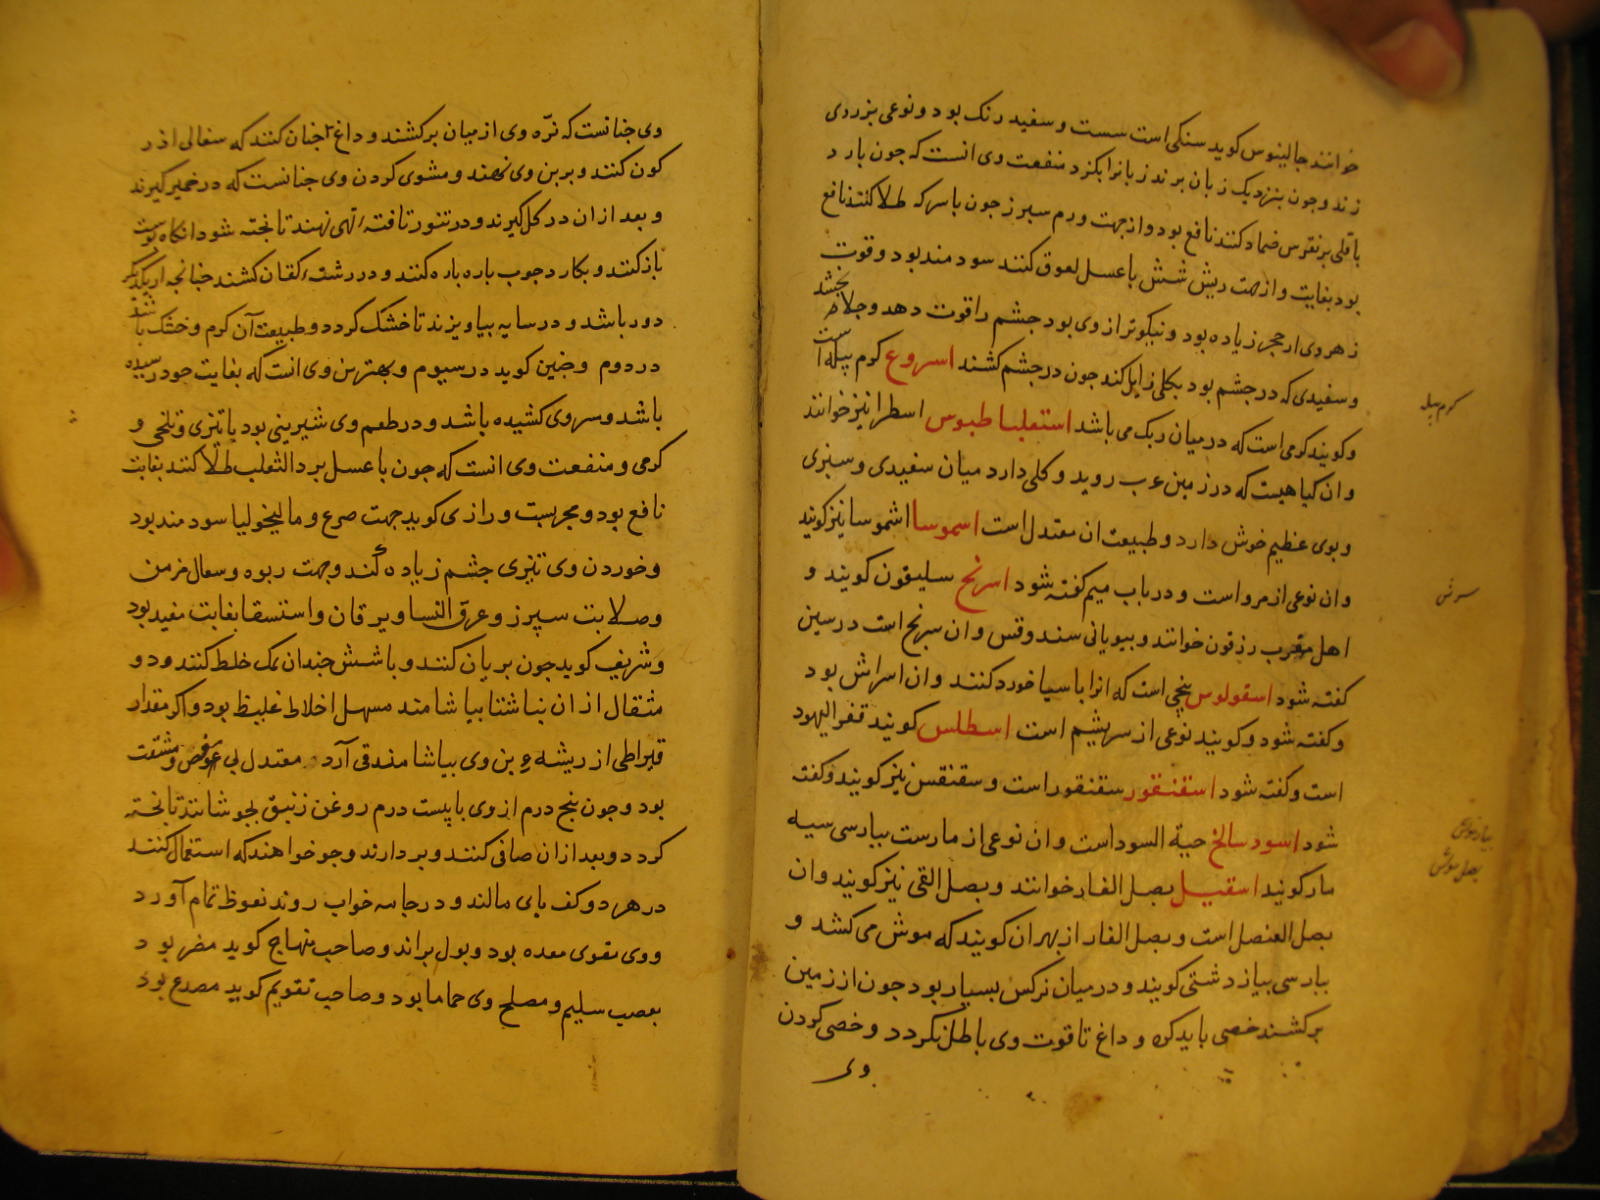 خوانند جالینوس کوید سنکی است سست و سفید رنک بود و نوعی بزردی
زند و جون بنزدیک زبان برند زبانرا بکزد منفعت وی انست که جون بارد
باقلی بر نقرس ضماد کنند نافع بود و از جهت ورم سبرز جون باسرکه طلا کنند نافع
بود بغایت و از جهت ریش شش با عسل لعوق کنند سود مند بود و قوت
زهر وی از حجر زیاده بود و نیکوتر از وی بود جشم را قوت دهد و جلا بخشد
و سفیدی که در جشم بود بکلی زایل کند جون در جشم کشند اسروع کرم پیله است
و کویند کرمی است که در میان ریک می باشد استعلیاطبوس اسطرا نیز خوانند
و ان کیاهیست که در زمین عرب روید و کلی دارد میان سفیدی و سبزی
و بوی عظیم خوش دارد و طبیعت ان معتدل است اسموسا اشموسا نیز کویند
و ان نوعی از مرو است و در باب میم کفته شود اسرنج سلیقون کویند و
اهل مغرب رزقون خوانند و بیونانی سندوقس و ان سرنج است در سین
کفته شود اسقولوس بیخی است که انرا با سیا خورد کنند و ان اسراش بود
و کفته شود و کویند نوعی از سریشم است اسطلس کویند قفر الیهود
است و کفته شود اسقنقور سقنقور است و سقنقس نیز کویند و کفته
شود اسود سالخ حیة السود است و ان نوعی از مارست ببارسی سیه
مار کویند اسقیل بصل الفار خوانند و بصل القی نیز کویند و ان
بصل العنصل است و بصل الفار از بهر ان کویند که موش می کشد و
ببارسی بیاز دشتی کویند و در میان نرکس بسیار بود جون از زمین
برکشند خصی باید کرد و داغ تا قوت وی باطل نکردد و خصی کردن
وی
کرم پیله
سرش
بیاز موش
بصل موش
وی جنانست که نرّه وی از میان برکشند و داغ جنان کنند که سفالی اذر
کون کنند و بر بن وی نهند و مشوی کردن وی جنانست که در خمیر کیرند
و بعد از ان در کل کیرند و در تنور تافته تهی نهند تا بخته شود انکاه بوست
باز کنند و بکارد جوب باره باره کنند و در رشته کتان کشند جنانجه از یکدیکر
دور باشد و در سایه بیاویزند تا خشک کردد و طبیعت آن کرم و خشک باشد
در دوم و جنین کوید در سیوم و بهترین وی انست که بغایت خود رسیده
باشد و سر وی کشیده باشد و در طعم وی شیرینی بود با تیزی و تلخی و
کرمی و منفعت وی انست که جون با عسل بر داالثعلب طلا کنند بغایت
نافع بود و مجربست و رازی کوید جهت صرع و مالیخولیا سود مند بود
و خوردن وی تیزی جشم زیاده کند و جهت ربو و سعال مزمن
و صلابت سپرز و عرق النسا و یرقان و استسقا بغایت مفید بود
و شریف کوید جون بریان کنند و با شش جندان نمک خلط کنند و دو
مثقال از ان ناشتا بیاشامند مسهل اخلاط غلیظ بود و اکر مقدار
قیراطی از ریشه بن وی بیاشامند قی آرد معتدل بی عوض و مشقت
بود و جون بنج درم از وی با بیست درم روغن زنبق بجوشانند تا بخته
کردد و بعد از ان صافی کنند و بردارند و جو خواهند که استعمال کنند
در هر دو کف بای مالند و در جامه خواب روند نعوظ تمام آورد
و وی مقوی معده بود و بول براند و صاحب منهاج کوید مضر بود
بعصب سلیم و مصلح وی حماما بود و صاحب تقویم کوید مصدع بود